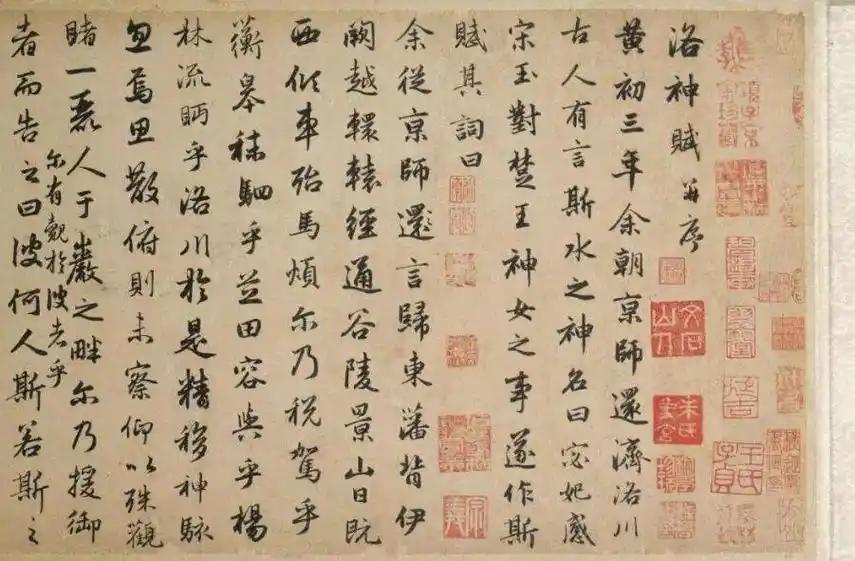 洛神賦 并序
黃初三年余朝京師還濟洛川
古人有言斯水之神名曰宓妃感
宋玉對楚王神女之事遂作斯
賦其詞曰
余從京師還言歸東藩背伊
闕越轘轅經通谷陵景山日既
西傾車殆馬煩尔乃稅駕乎
蘅皋秣駟乎芝田容與乎楊
林流眄乎洛川於是精移神駭
忽焉思散俯則未察仰以殊觀
睹一麗人于巖之畔尔乃援御
尔有覿於彼者乎
者而告之曰彼何人斯若斯之
文石山人